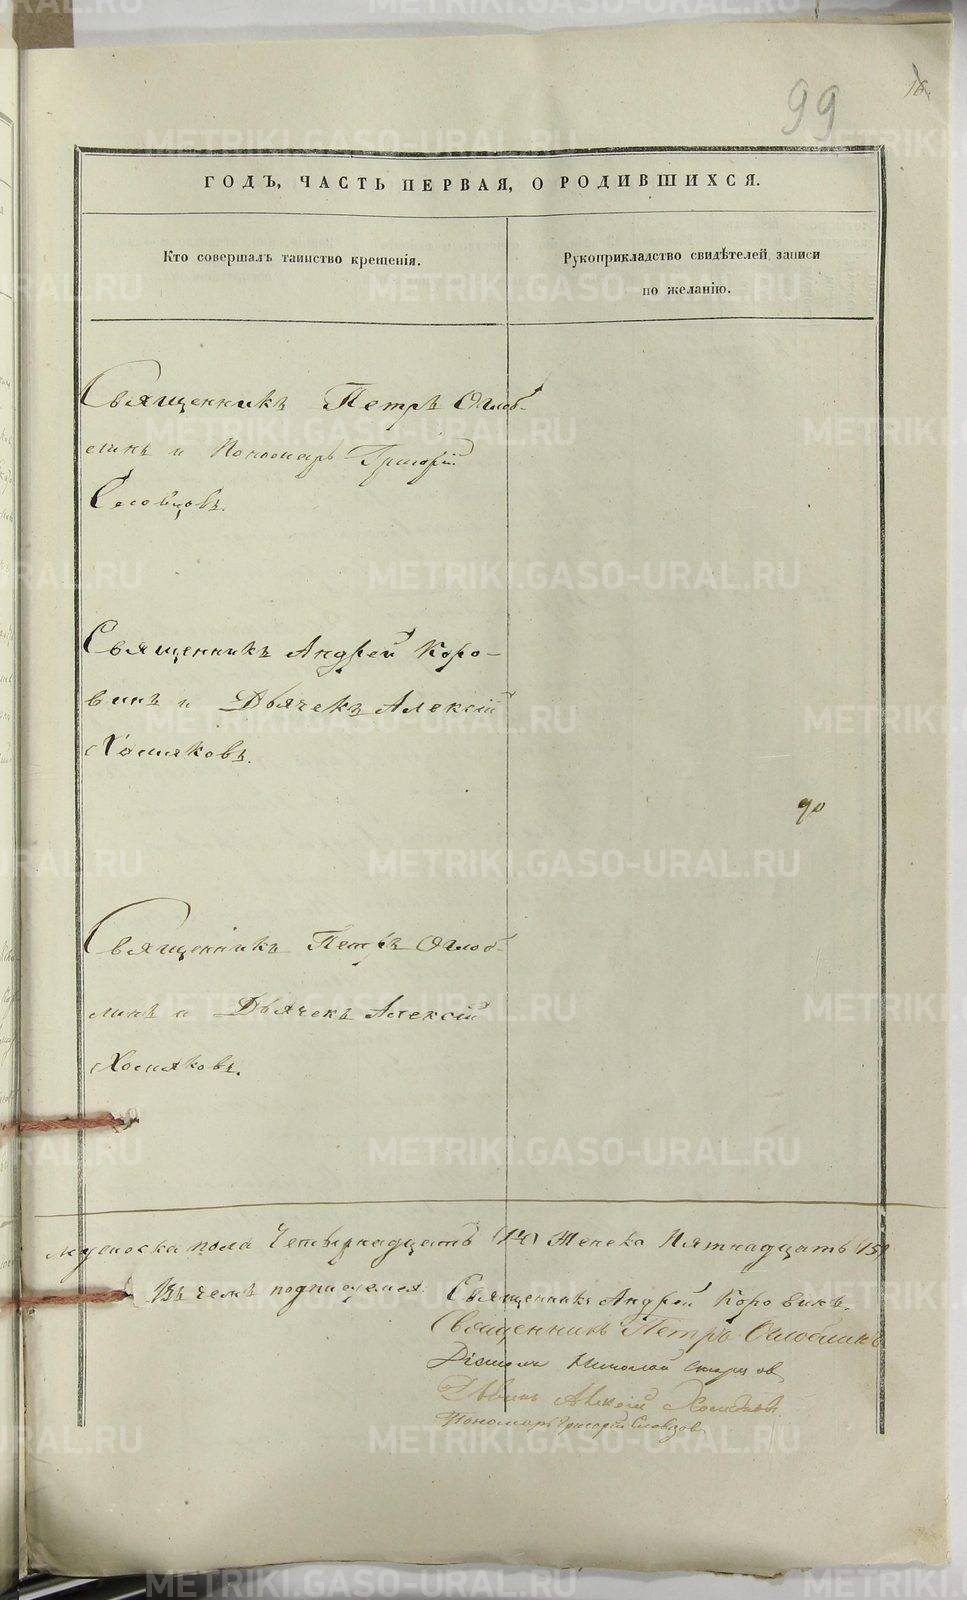 99
16.
ГОДЪ, ЧАСТЬ ПЕРВАЯ, О РОДИВШИХСЯ.
Кто совершалъ таинство крещенія.
Рукоприкладство свидѣтелей записи
по желанію.
Священникъ Петръ Оглоб-
линъ и Пономарь Григорій
Словцовъ.
Священникъ Андрей Коро-
винъ и Дьячекъ Алексій
Хомяковъ.
90
Священникъ Петръ Оглоб-
линъ и Дьячекъ Алексій
Хомяковъ.
Мужеска пола Четырнадцать (14) Женска Пятнадцать (15)
Въ чемъ подписуемся: Священникъ Андрей Коровинъ.
Священникъ Петръ Оглоблинъ
Діаконъ Николай Старцовъ
Алексій Хомяковъ
Пономарь Григорій Словцовъ
METRIKI.GASO-URAL.RU